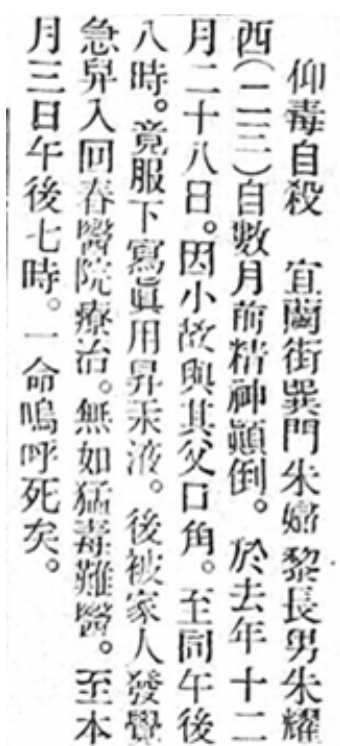 仰毒自殺　宜蘭街巽門朱嬸黎長男朱耀
西(二二)自數月前精神顚倒。於去年十二
月二十八日。因小故與其父口角。至同午後
八時。竟服下寫眞用昇汞液。後被家人發覺
急舁入回春醫院療治。無如猛毒難醫。至本
月三日午後七時。一命嗚呼死矣。